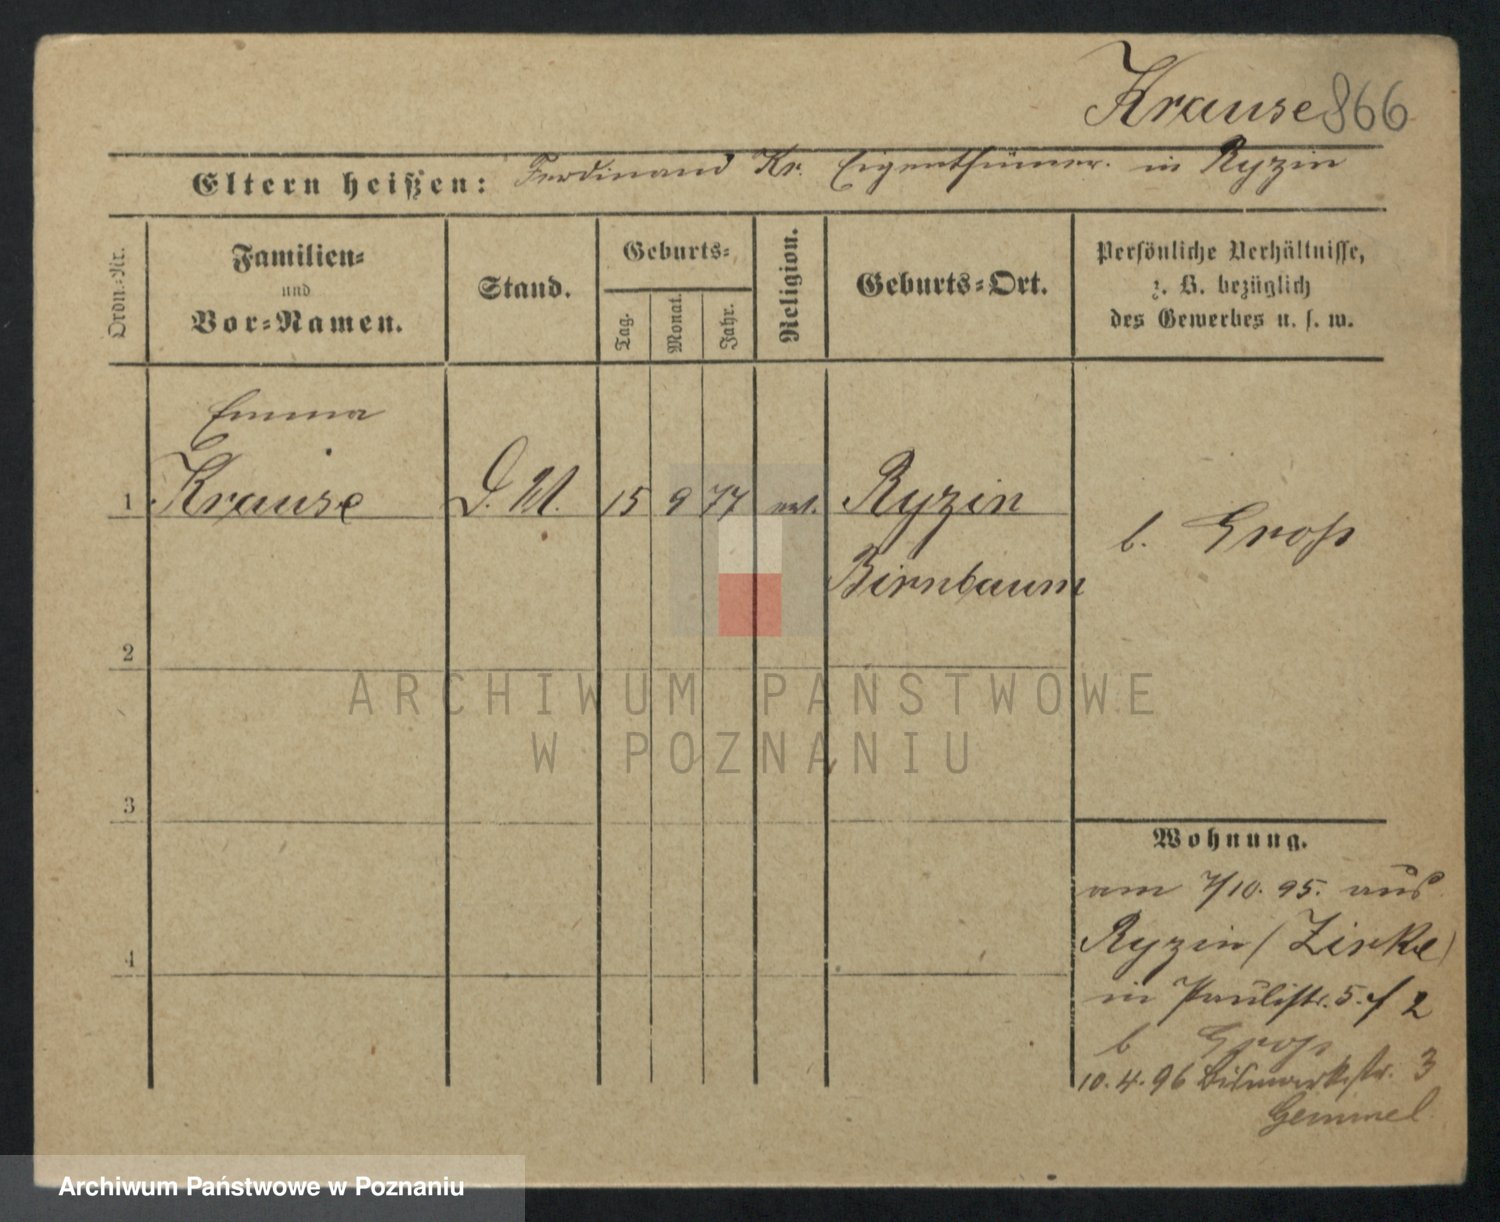 Krause 866
Eltern heißen: Ferdinand Kr. Eigenthümer. in Ryzin
Ordn.-Nr.
Familien-
und
Vor-Namen.
Stand.
Geburts-
Tag.
Monat.
Jahr.
Religion.
Geburts-Ort.
Persönliche Verhältnisse,
z. B. bezüglich
des Gewerbes u. s. w.
Emma
1 Krause D. M. 15 9 77 ev. Ryzin
Birnbaum
b. Groß
2
3
4
Wohnung.
am 7/10. 95. aus
Ryzin (Zirke)
in Paulistr. 5. f 2
b Groß
10. 4. 96 Bismarckstr. 3
Gemmel
ARCHIWUM PAŃSTWOWE
W POZNANIU
Archiwum Państwowe w Poznaniu